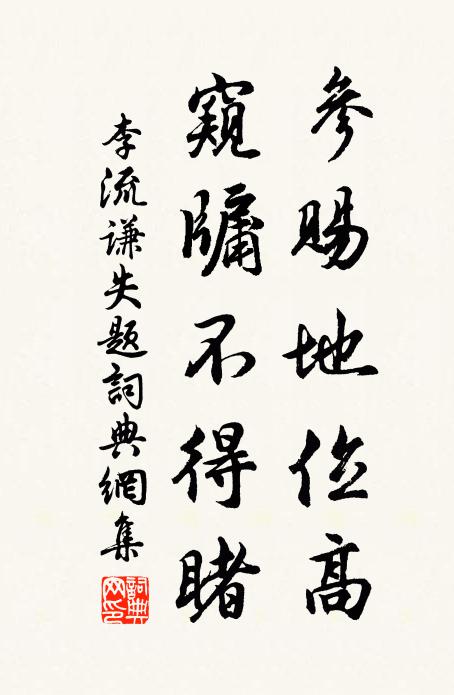 參賜地位高
窺牖不得睹
李流謙失題詞典網集
詞典网印